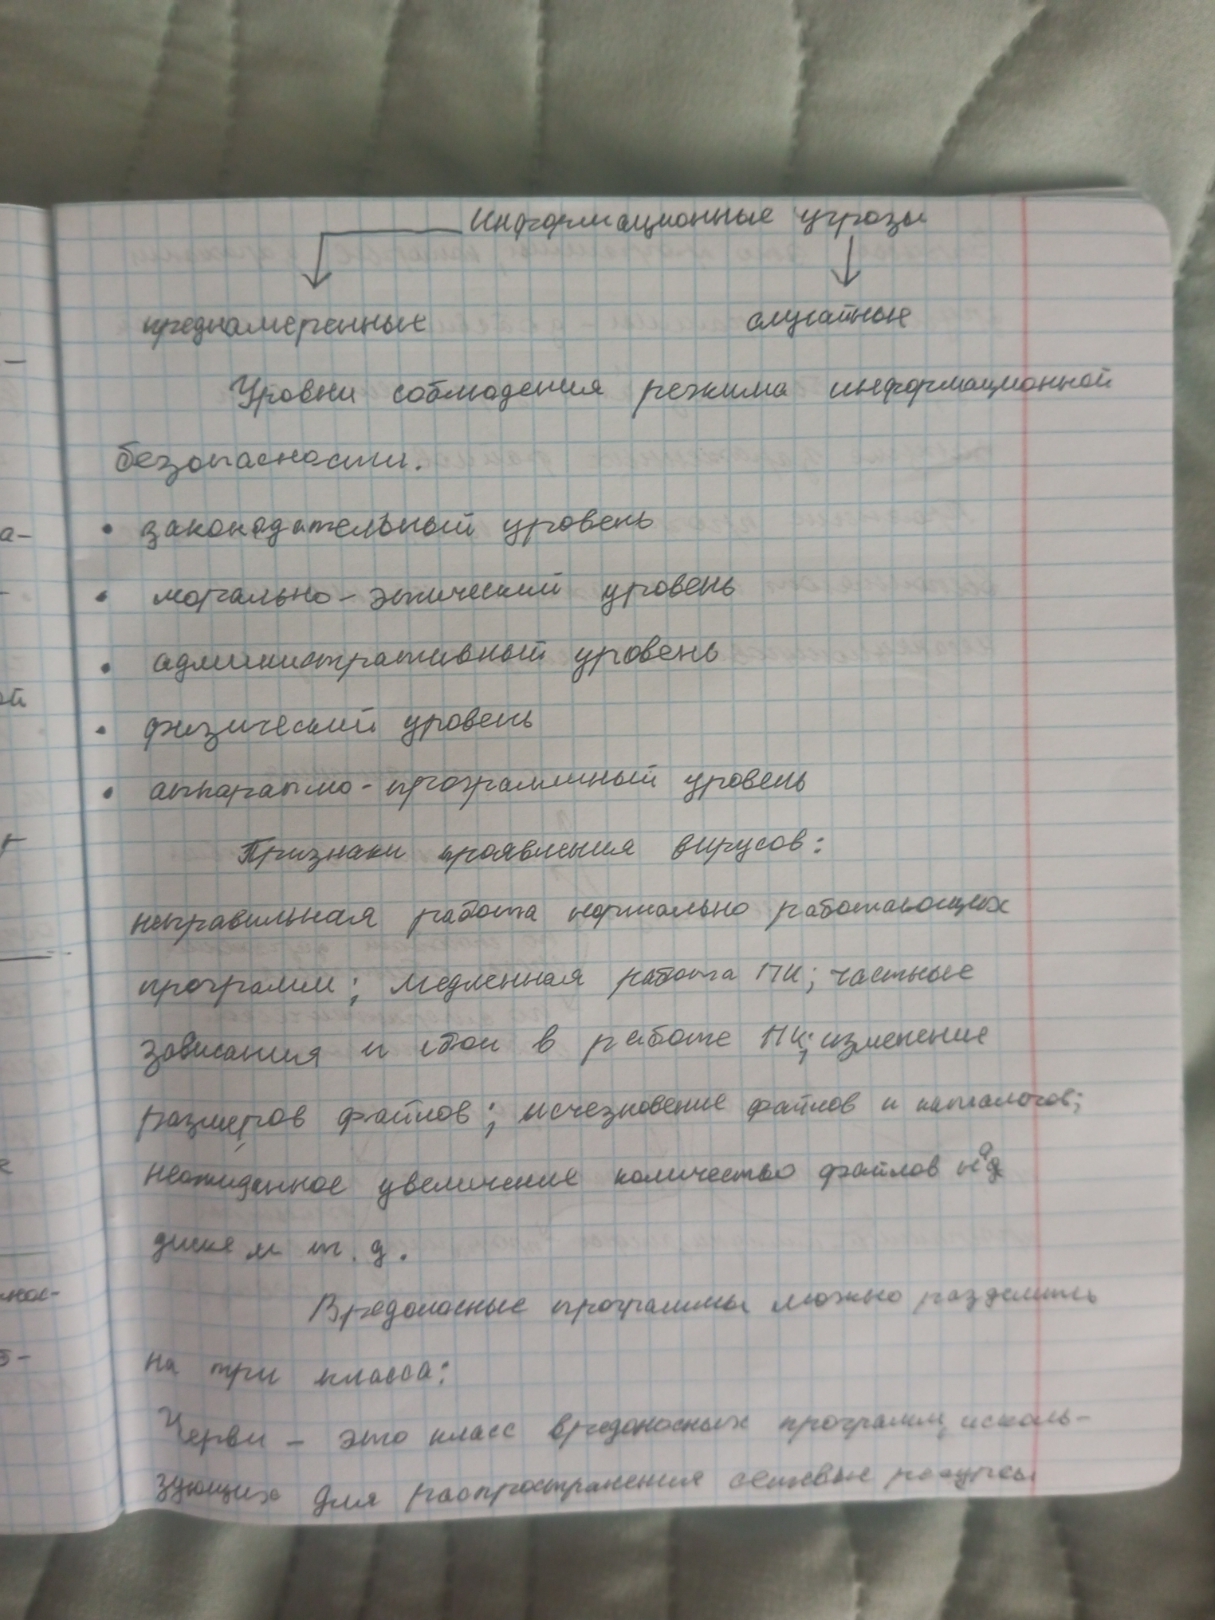 Информационные угрозы
преднамеренных случайные
Уровни соблюдения режима информационной
безопасности.
• законодательный уровень
• морально-этический уровень
• административный уровень
• физический уровень
• аппаратно-программный уровень
Признаки проявления вирусов:
неправильная работа нормально работающих
программ; медленная работа ПК; частные
зависания и сбои в работе ПК; изменение
размеров файлов; исчезновение файлов и каталогов;
неожиданное увеличение количество файлов на
диске и т.д.
Вредоносные программы можно разделить
на три класса:
Черви – это класс вредоносных программ, исполь-
зующих для распространения сетевые ресурсы